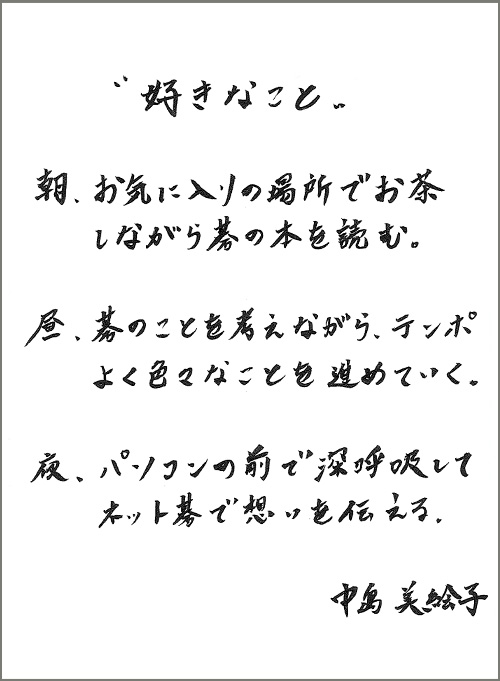 "好きなこと"
朝、お気に入りの場所でお茶
しながら碁の本を読む。
昼、碁のことを考えながら、テンポ
よく色々なことを進めていく。
夜、パソコンの前で深呼吸して
ネット碁で想いを伝える。
中島 美絵子